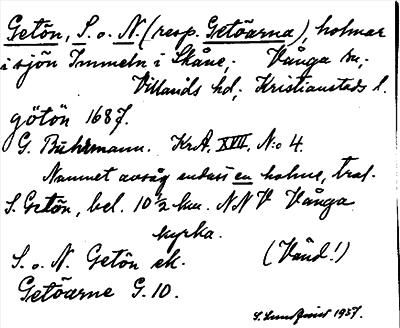 Getön, S. o. N. (resp. Getöarna), holmar
i sjön Immeln i Skåne; Vånga sn;
Villands hd; Kristianstads l.
götön 1687.
G. Buhrmann. KrA. XVII, N:o 4.
Namnet avsåg endast en holme, trol.
S. Getön, bel. 10 ½ km. NNV Vånga
kyrka.
S. o. N. Getön ek. (Vänd!)
Getöarne G. 10.
1937.